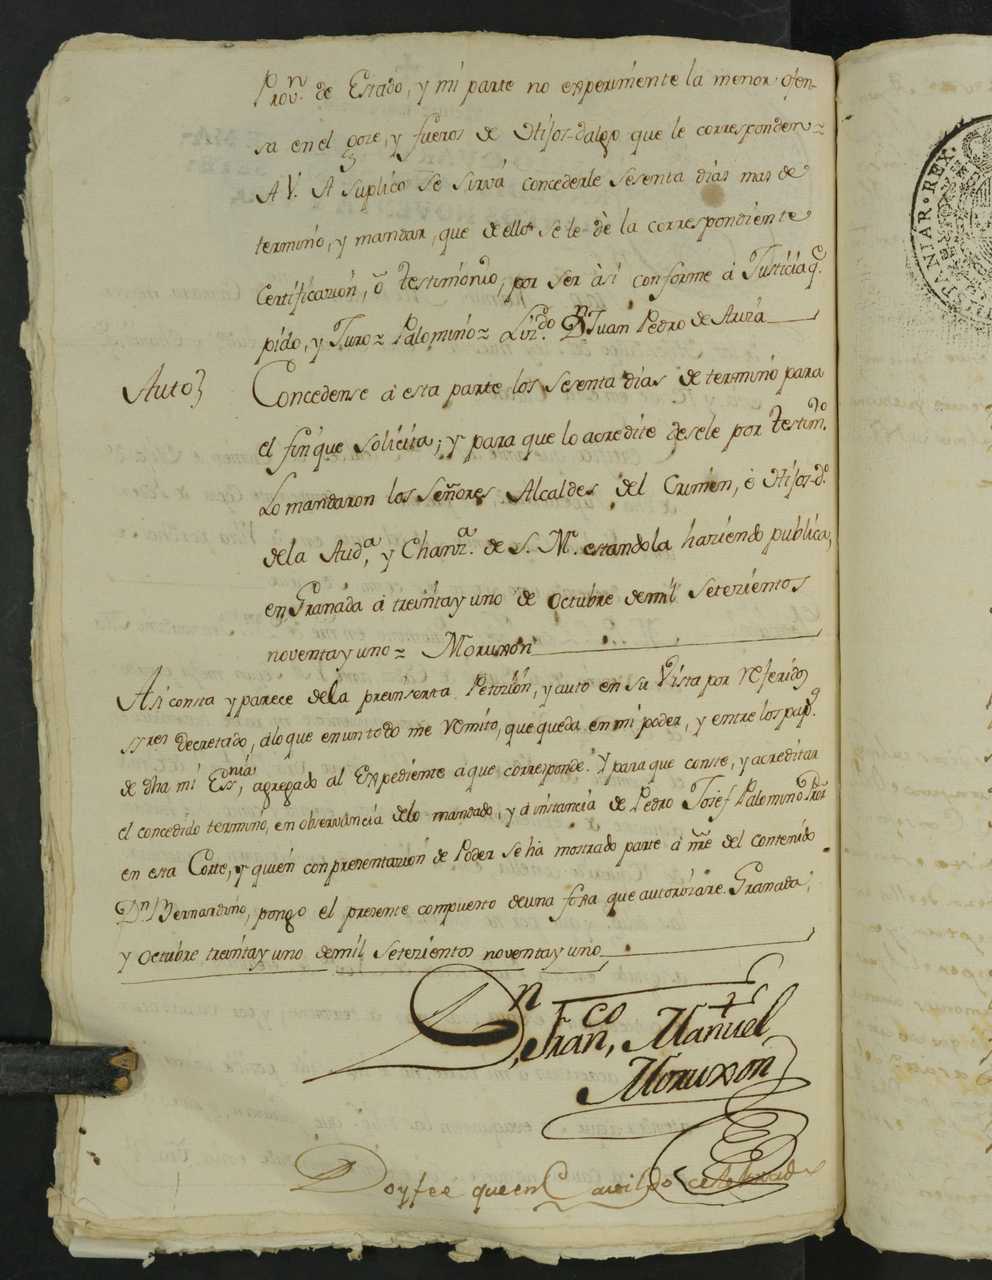 Provn. de Estado, y mi parte no experimente la menor ofen-
sa en el gose, y fueros de Hijos-dalgo que le corresponden =
A V. A suplico se sirva concederle sesenta dias mas de
termino, y mandar, que de ello se le dè la correspondiente
Certificazion, ò testimonio, por ser àsi conforme á Justicia q.e
pido, y Juro = Palomino = Liz.do Dn. Juan Pedro de Auza
Auto} Concedense á esta parte los sesenta dias de termino para
el fin que solicita; y para que lo acredite desele por testim.o
Lo mandaron los Señores Alcaldes del Crimen, è Hijos-d.o
de la Aud.a, y Chanz.a de S. M. estandola haziendo publica,
en Granada á treinta y uno de Octubre de mil setezientos
noventa y uno = Moruxon
Asi consta y parece de la preinserta Petizion, y auto en su Vista por referidos
ss.res decretado, á lo que en un todo me remito, que queda en mi poder, y entre los pap.s
de dha mi Ess.nia, agregado al Expediente á que corresponde. Y para que conste, y acreditar
el concedido termino, en observancia de lo mandado, y á instancia de Pedro Josef Palomino Pror
en esta Corte, y quien con presentazion de Poder se ha mostrado parte á nre del contenido
Dn. Bernardino, pongo el presente compuesto de una foxa que autorizare. Granada,
y Octubre treinta y uno de mil setezientos noventa y uno
Dn. Fran.co Manuel
Moruxon
Doy fee que en Cavildo
PANIAR · REX ·